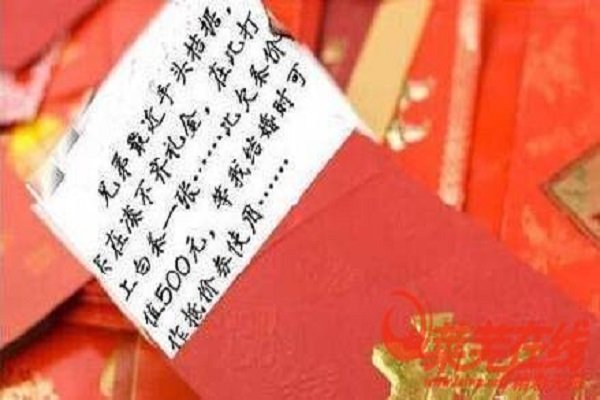 兄弟最近手头拮据,
实在凑不齐礼金, 在此打
上白条一张……此欠条价
值500元, 等我结婚时可
作抵价券使用……
莱芜在线